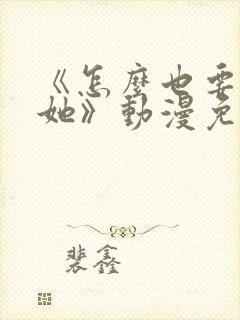 《怎麼也要
她》動漫免
裴鑫